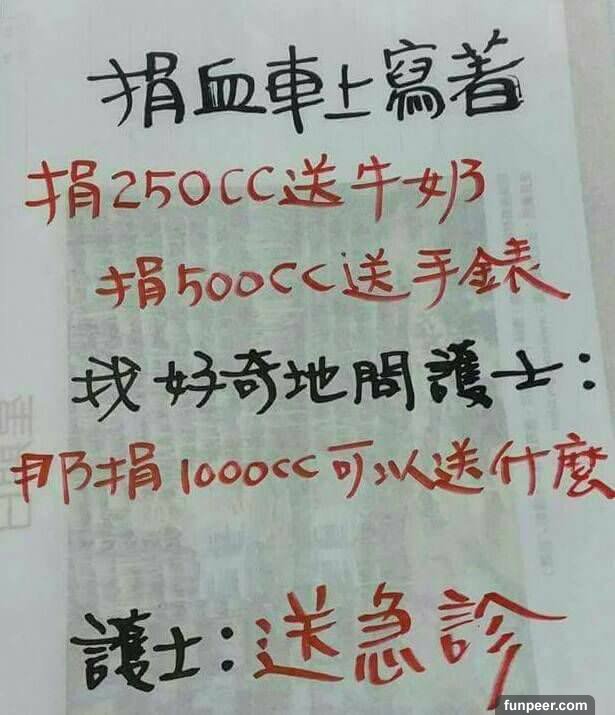 捐血車上寫著
捐250CC送牛奶
捐500CC送手錶
我好奇地問護士：
那捐1000cc可以送什麼
護士：送急診
funpeer.com